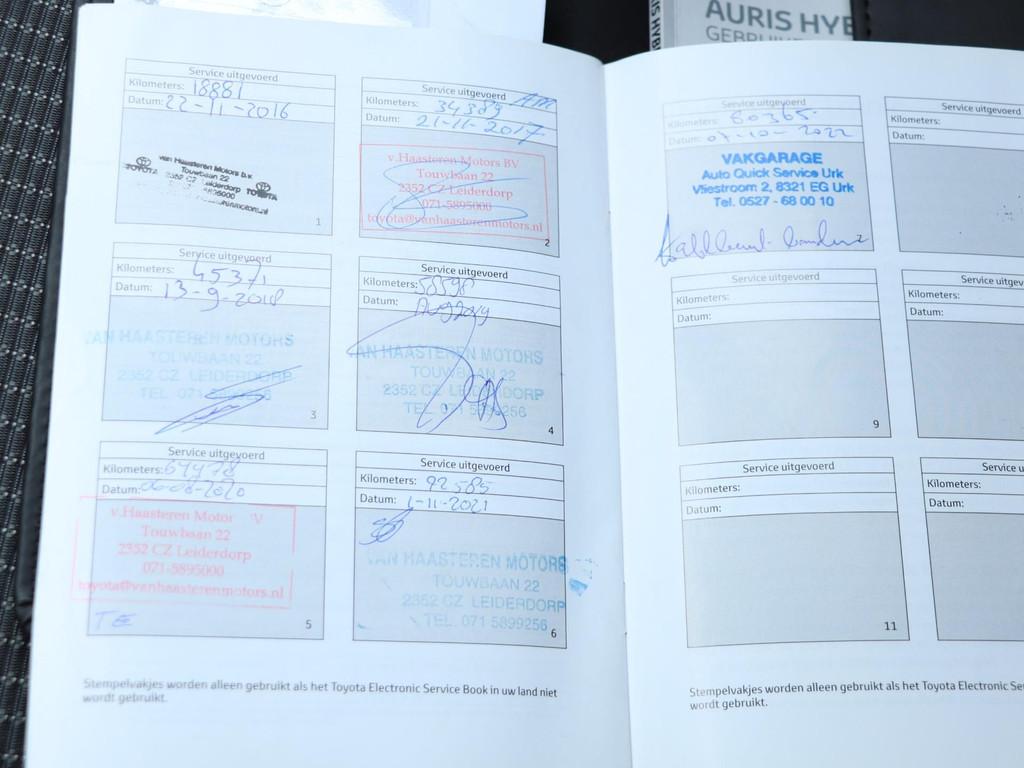 AURIS HYB
Service uitgevoerd
Kilometers: 18881
Datum: 22-11-2016
van Haasteren Motors b.v.
TOYOTA Touwbaan 22
2352 CZ Leiderdorp TOYOTA
1
Service uitgevoerd
Kilometers: 34389
Datum: 21-11-2017
v.Haasteren Motors BV
Touwbaan 22
2352 CZ Leiderdorp
071-5895000
toyota@vanhaasterenmotors.nl
2
Service uitgevoerd
Kilometers: 45371
Datum: 13-9-2018
VAN HAASTEREN MOTORS
TOUWBAAN 22
2352 CZ LEIDERDORP
TEL. 071
3
Service uitgevoerd
Kilometers: 58598
Datum:
VAN HAASTEREN MOTORS
TOUWBAAN 22
2352 CZ LEIDERDORP
TEL. 071 5899256
4
Service uitgevoerd
Kilometers: 64478
Datum: 06-08-2020
v.Haasteren Motor V
Touwbaan 22
2352 CZ Leiderdorp
071-5895000
toyota@vanhaasterenmotors.nl
TE
5
Service uitgevoerd
Kilometers: 92585
Datum: 1-11-2021
VAN HAASTEREN MOTORS
TOUWBAAN 22
2352 CZ LEIDERDORP
TEL. 071 5899256
6
Stempelvakjes worden alleen gebruikt als het Toyota Electronic Service Book in uw land niet
wordt gebruikt.
Service uitgevoerd
Kilometers: 80365.
Datum: 07-10-2022
VAKGARAGE
Auto Quick Service Urk
Vliestroom 2, 8321 EG Urk
Tel. 0527 - 68 00 10
Service uitgevoerd
Kilometers:
Datum:
Service uitgevoerd
Kilometers:
Datum:
9
Service uitgev
Kilometers:
Datum:
Service uitgevoerd
Kilometers:
Datum:
11
Service u
Kilometers:
Datum:
Stempelvakjes worden alleen gebruikt als het Toyota Electronic Se
wordt gebruikt.